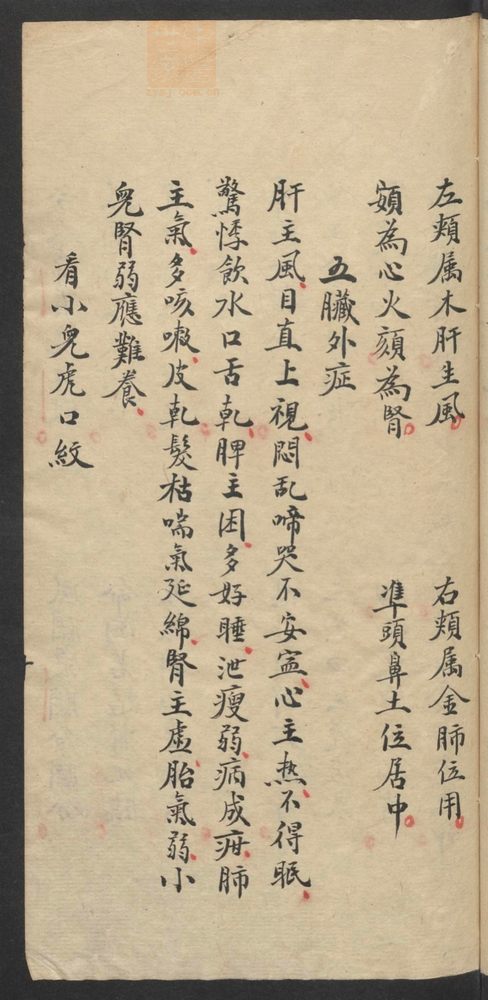 左頰属木肝生風　右頰属金肺位用
額為心火頦為腎　準頭鼻土位居中
五臟外症
肝主風目直上視悶乱啼哭不安寍心主热不得眠
驚悸飲水口舌乹脾主困多好睡泄瘦弱病成疳肺
主氣多咳嗽皮乹髮枯喘氣延綿腎主虛胎氣弱小
兒腎弱應難養
看小兒虎口紋